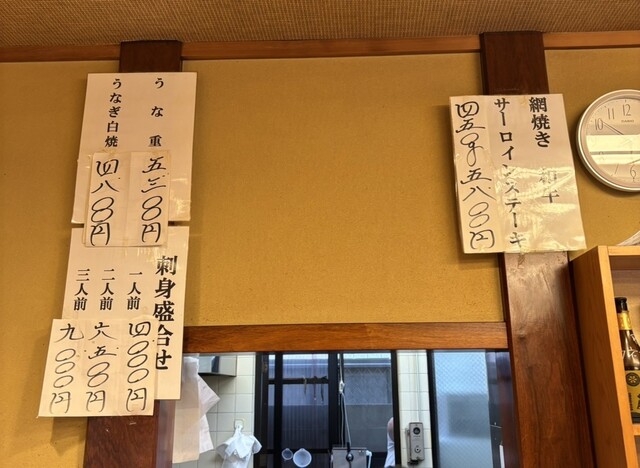 うな重
五、三〇〇円
うなぎ白焼
四、八〇〇円
刺身盛合せ
一人前
四、〇〇〇円
二人前
六、五〇〇円
三人前
九、〇〇〇円
網焼き
和牛
サーロインステーキ
五、八〇〇円